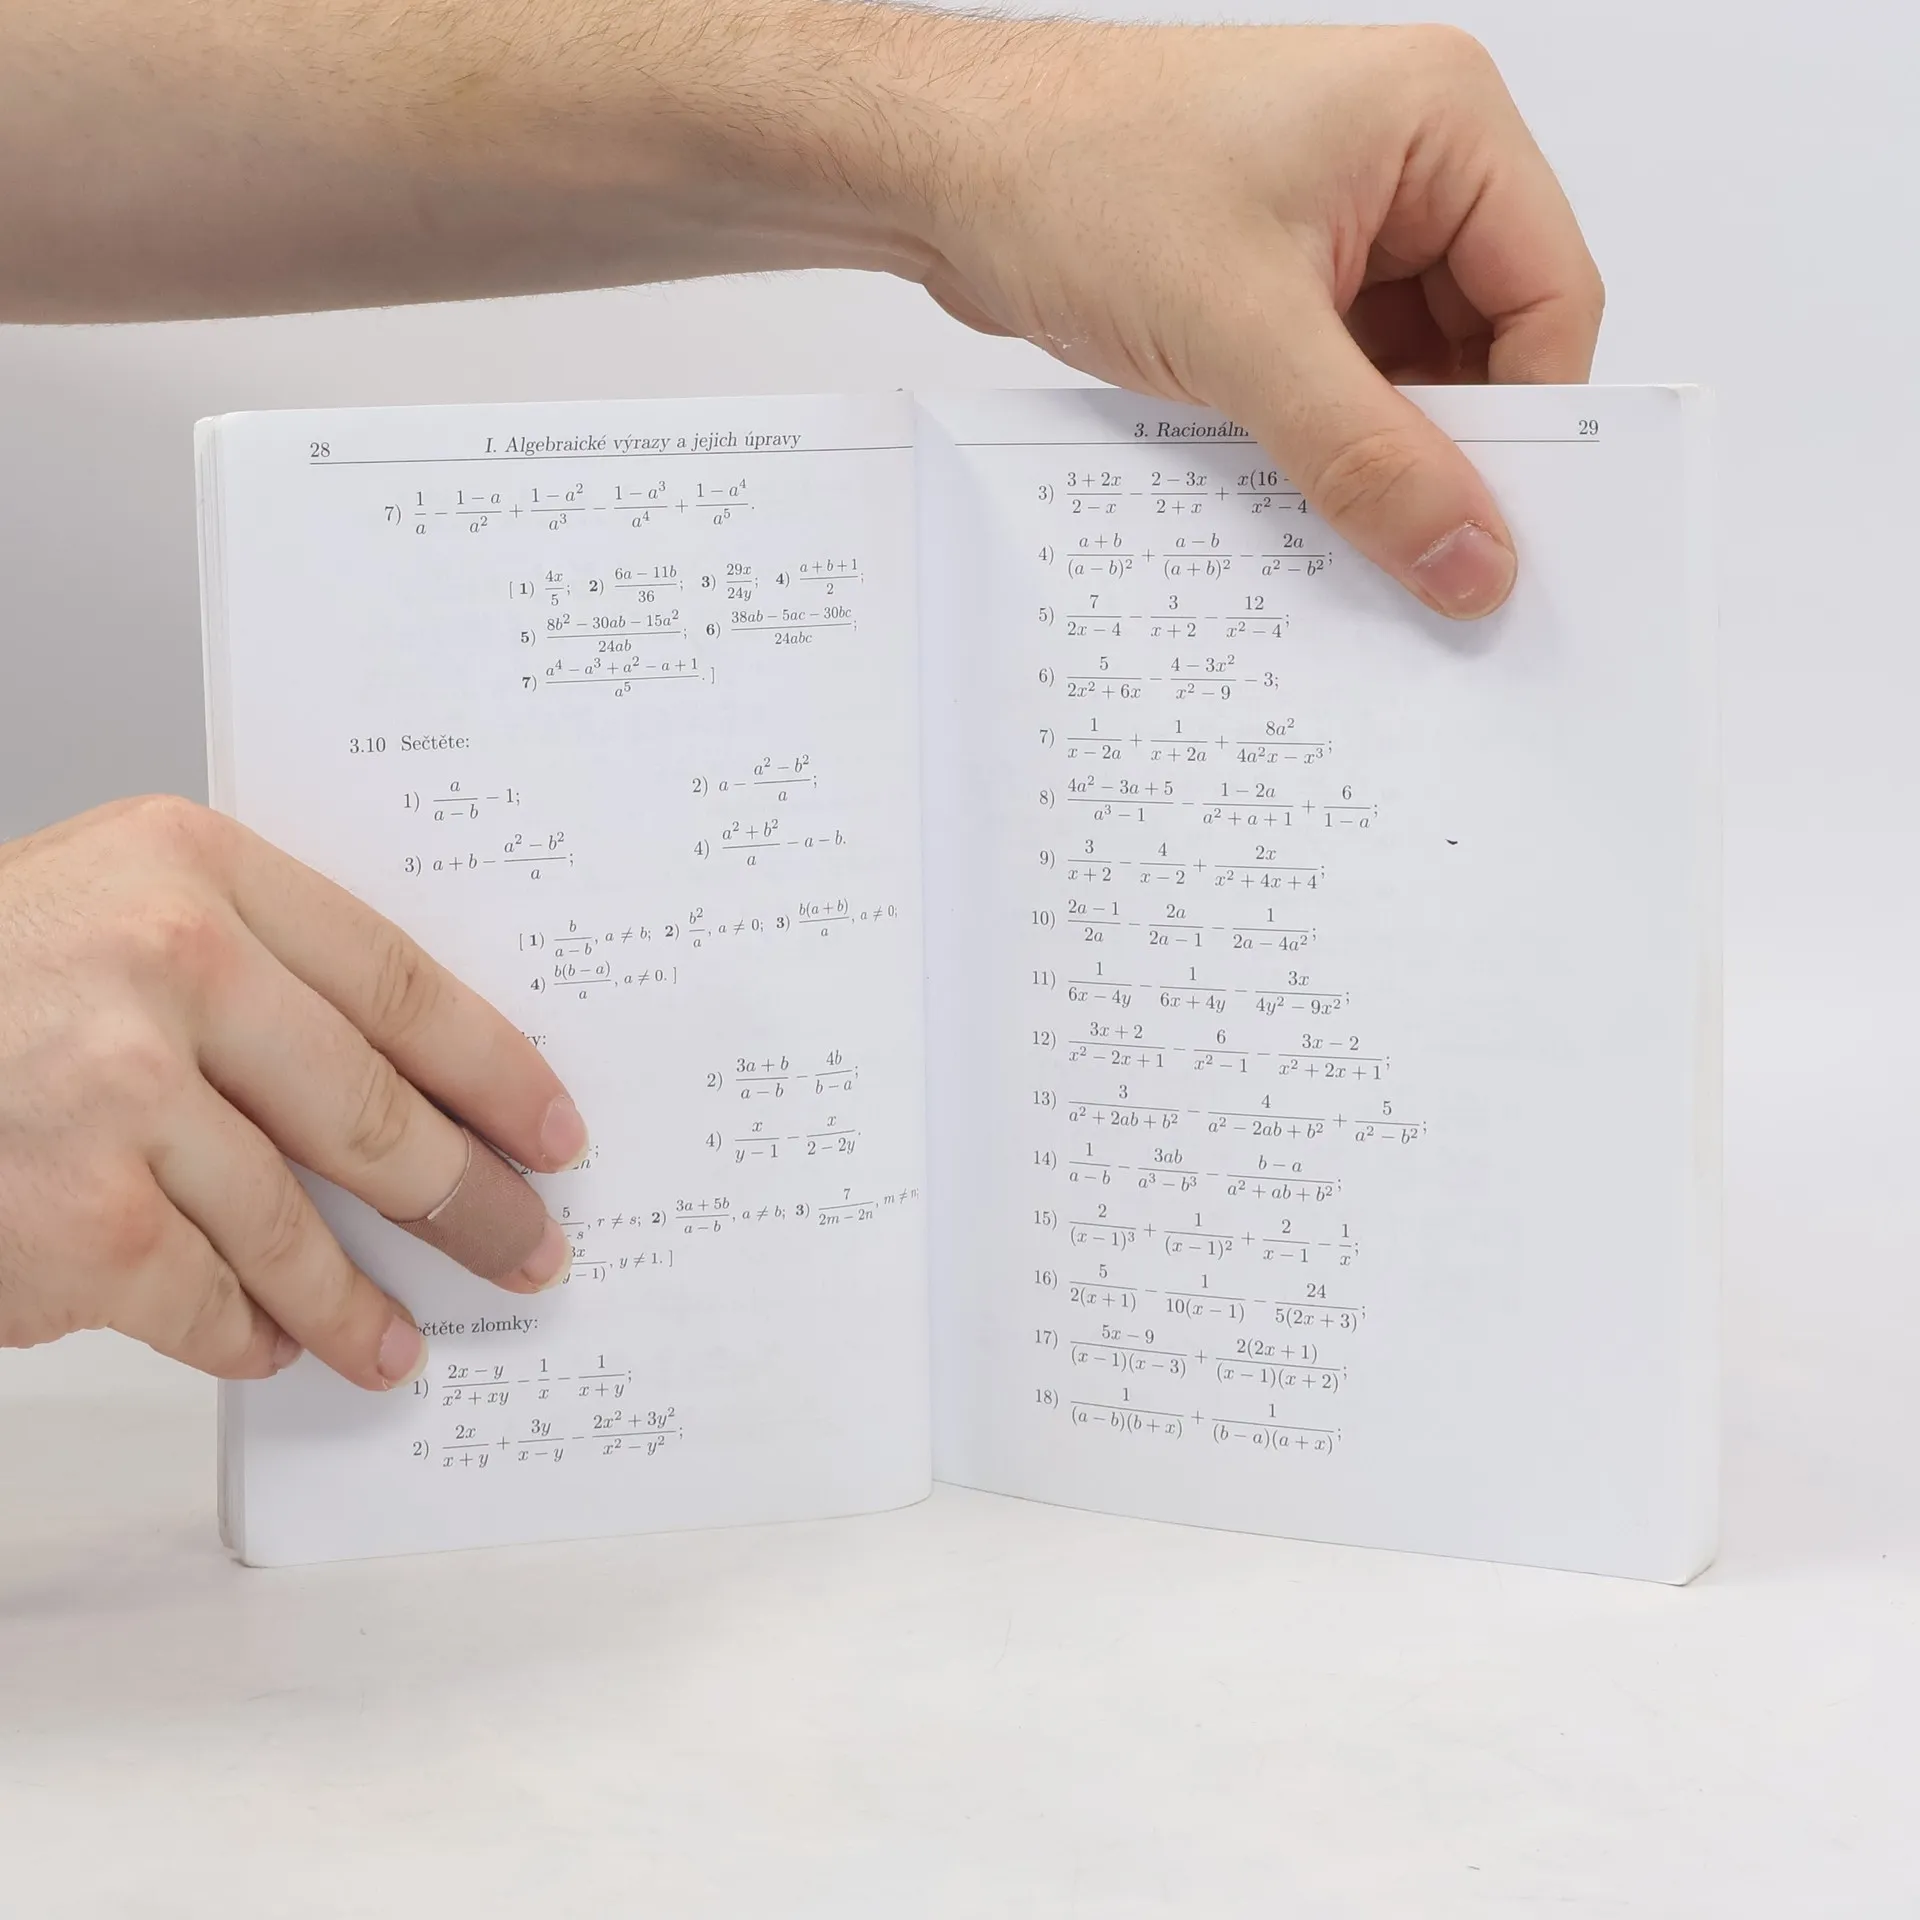 28 I. Algebraické výrazy a jejich úpravy
7) \frac{1}{a} - \frac{1-a}{a^2} + \frac{1-a^2}{a^3} - \frac{1-a^3}{a^4} + \frac{1-a^4}{a^5}.
[ 1) \frac{4x}{5}; 2) \frac{6a-11b}{36}; 3) \frac{29x}{24y}; 4) \frac{a+b+1}{2};
5) \frac{8b^2-30ab-15a^2}{24ab}; 6) \frac{38ab-5ac-30bc}{24abc};
7) \frac{a^4-a^3+a^2-a+1}{a^5}. ]
3.10 Sečtěte:
1) \frac{a}{a-b} - 1; 2) a - \frac{a^2-b^2}{a};
3) a + b - \frac{a^2-b^2}{a}; 4) \frac{a^2+b^2}{a} - a - b.
[ 1) \frac{b}{a-b}, a ≠ b; 2) \frac{b^2}{a}, a ≠ 0; 3) \frac{b(a+b)}{a}, a ≠ 0;
4) \frac{b(b-a)}{a}, a ≠ 0. ]
2) \frac{3a+b}{a-b} - \frac{4b}{b-a};
4) \frac{x}{y-1} - \frac{x}{2-2y}.
r ≠ s; 2) \frac{3a+5b}{a-b}, a ≠ b; 3) \frac{7}{2m-2n}, m ≠ n;
y ≠ 1. ]
zlomky:
1) \frac{2x-y}{x^2+xy} - \frac{1}{x} - \frac{1}{x+y};
2) \frac{2x}{x+y} + \frac{3y}{x-y} - \frac{2x^2+3y^2}{x^2-y^2};
3. 29
3) \frac{3+2x}{2-x} - \frac{2-3x}{2+x} + \frac{x(16-}{x^2-4}
4) \frac{a+b}{(a-b)^2} + \frac{a-b}{(a+b)^2} - \frac{2a}{a^2-b^2};
5) \frac{7}{2x-4} - \frac{3}{x+2} - \frac{12}{x^2-4};
6) \frac{5}{2x^2+6x} - \frac{4-3x^2}{x^2-9} - 3;
7) \frac{1}{x-2a} + \frac{1}{x+2a} + \frac{8a^2}{4a^2x-x^3};
8) \frac{4a^2-3a+5}{a^3-1} - \frac{1-2a}{a^2+a+1} + \frac{6}{1-a};
9) \frac{3}{x+2} - \frac{4}{x-2} + \frac{2x}{x^2+4x+4};
10) \frac{2a-1}{2a} - \frac{2a}{2a-1} - \frac{1}{2a-4a^2};
11) \frac{1}{6x-4y} - \frac{1}{6x+4y} - \frac{3x}{4y^2-9x^2};
12) \frac{3x+2}{x^2-2x+1} - \frac{6}{x^2-1} - \frac{3x-2}{x^2+2x+1};
13) \frac{3}{a^2+2ab+b^2} - \frac{4}{a^2-2ab+b^2} + \frac{5}{a^2-b^2};
14) \frac{1}{a-b} - \frac{3ab}{a^3-b^3} - \frac{b-a}{a^2+ab+b^2};
15) \frac{2}{(x-1)^3} + \frac{1}{(x-1)^2} + \frac{2}{x-1} - \frac{1}{x};
16) \frac{5}{2(x+1)} - \frac{1}{10(x-1)} - \frac{24}{5(2x+3)};
17) \frac{5x-9}{(x-1)(x-3)} + \frac{2(2x+1)}{(x-1)(x+2)};
18) \frac{1}{(a-b)(b+x)} + \frac{1}{(b-a)(a+x)};